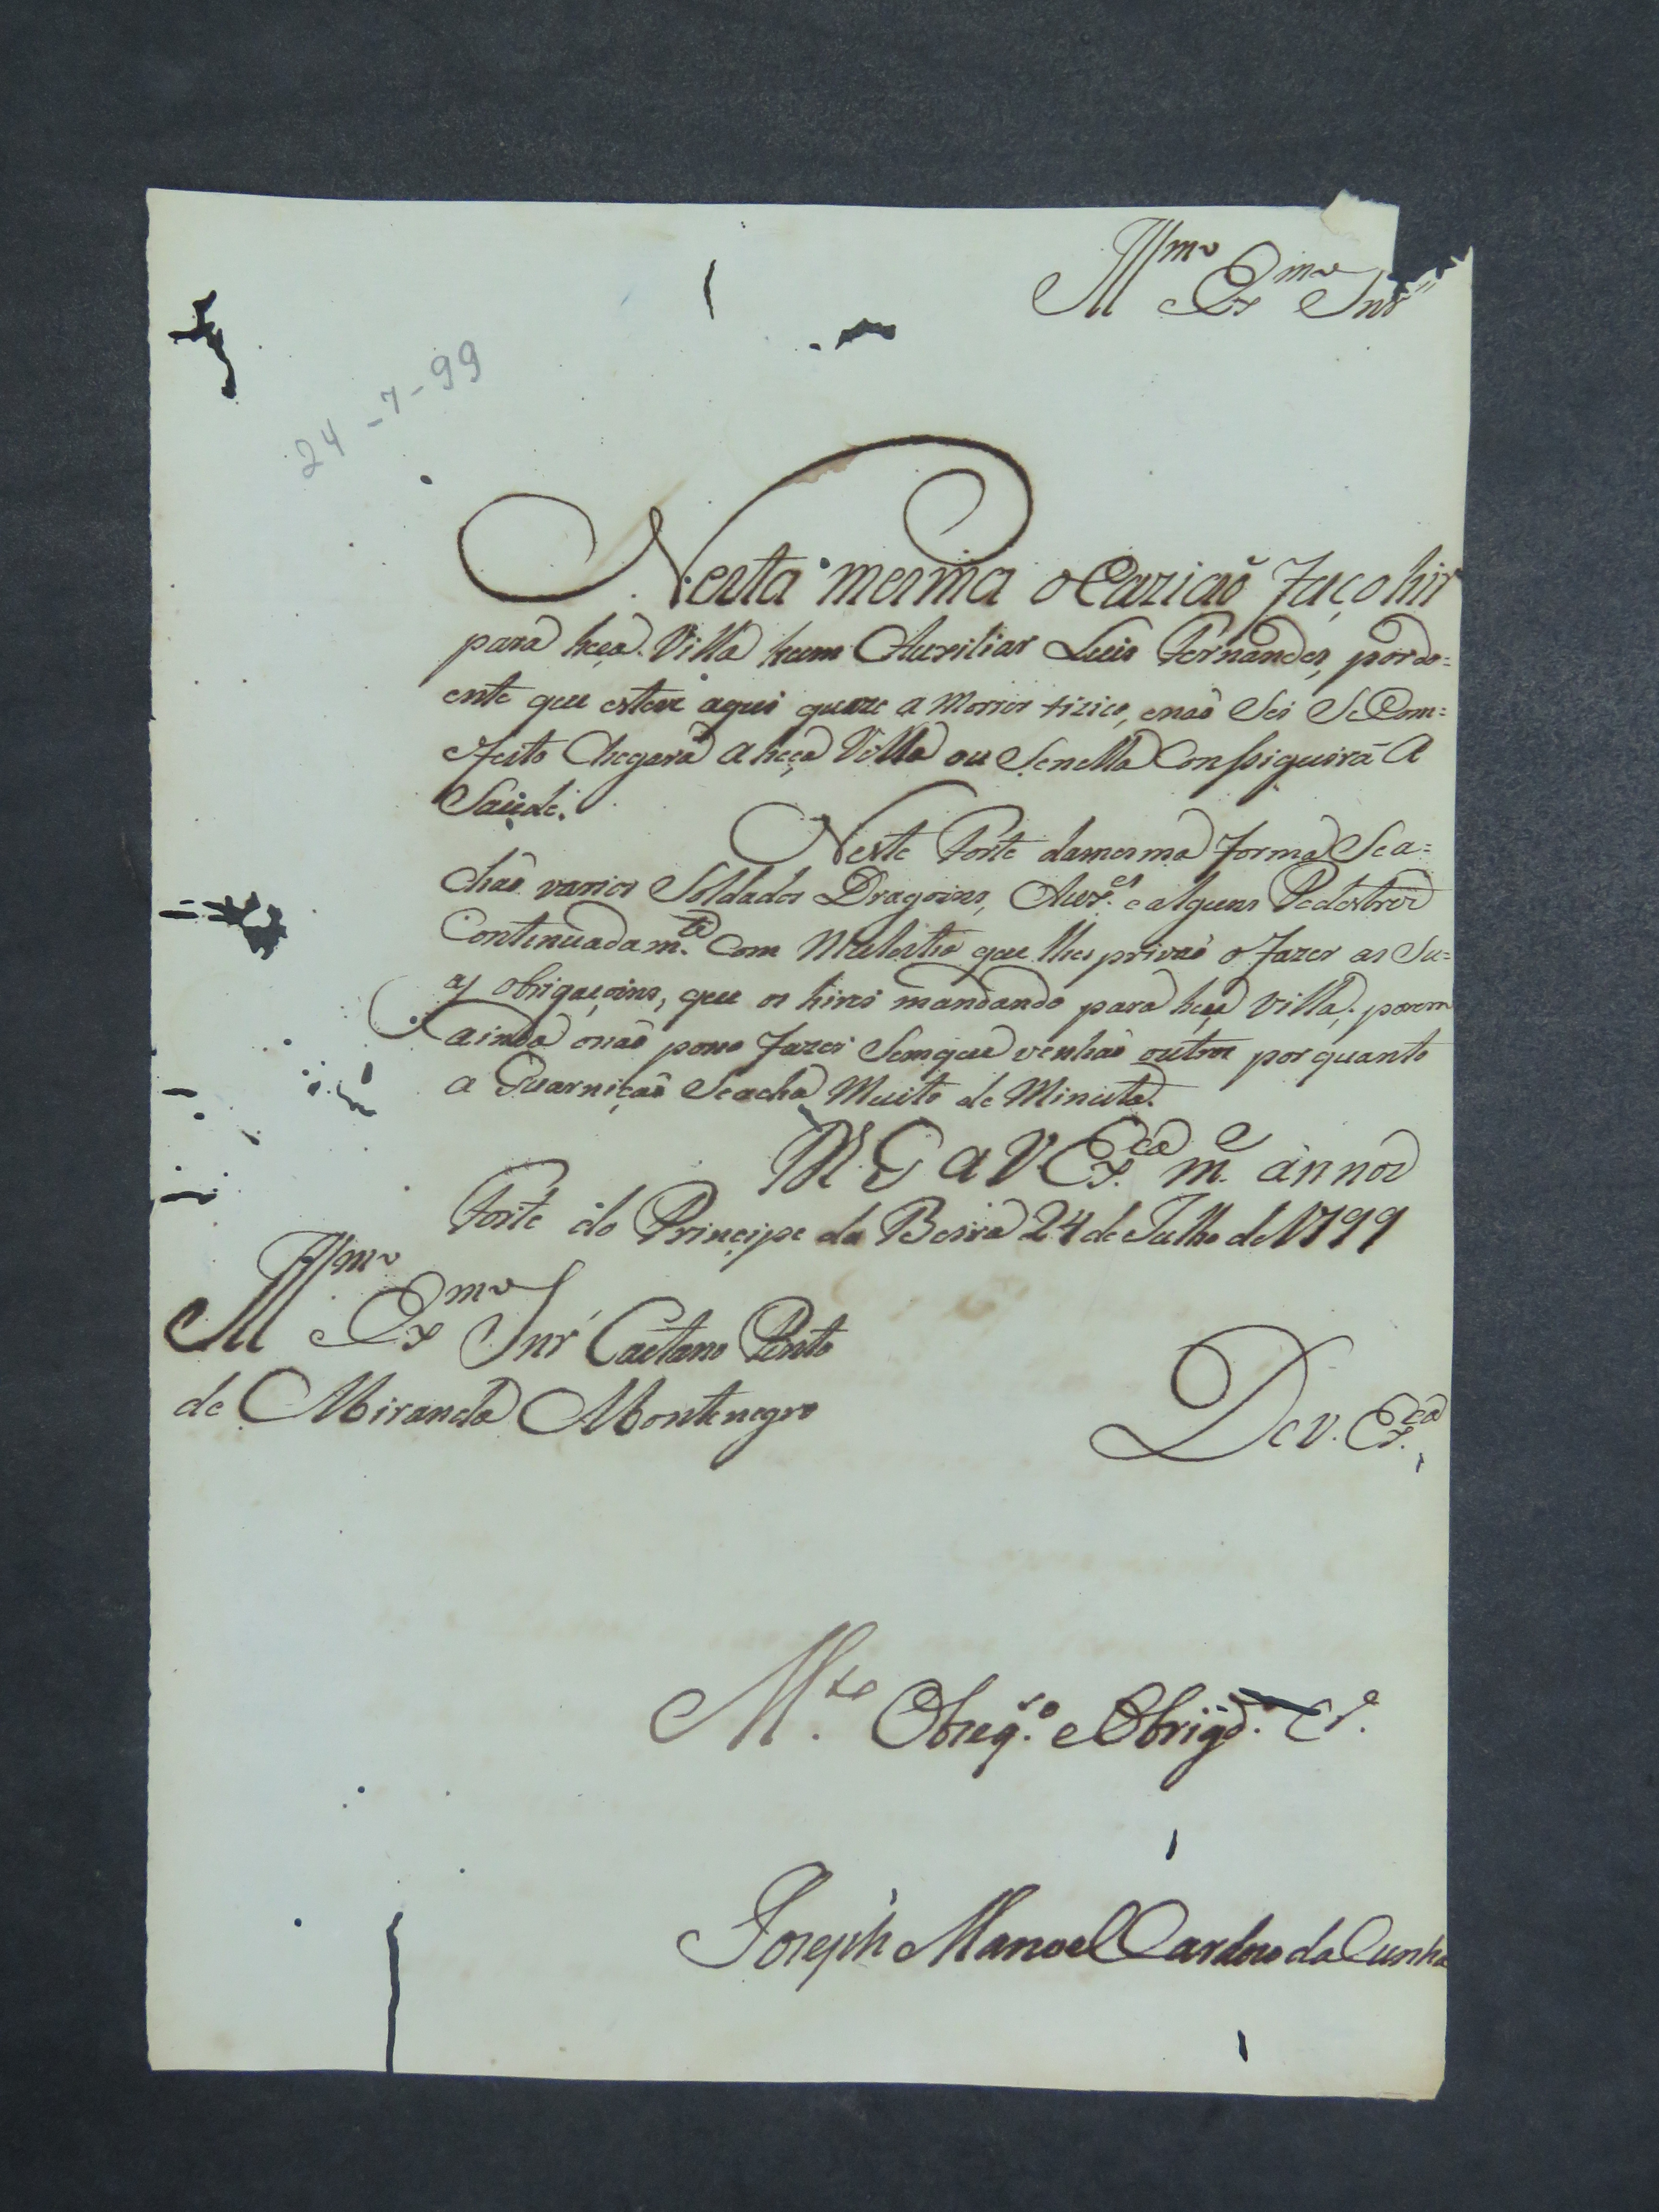 Illmo Exmo Snr
24-7-99
Nesta mesma ocaziaõ faço hir
para heça Villa hum Auxiliar Luis Fernandes, por do=
ente que esteve aqui quaze a morrer tizico, enaõ Sei Se Com=
efeito Chegará a heça Villa ou Senella Consiguirá A
Saude.
Neste Forte damesma forma Sea=
chaõ varios Soldados Dragoins, Auxes. e alguns Pedestres
Continuadamte. Com Molestia que lhes privaõ o fazer as Su=
as obrigaçoins, que os hirei mandando para heça Villa; porem
ainda onaõ poso fazer Semque venhaõ outros por quanto
a Guarniçaõ Seacha Muito de Minuta.
N. G a V. Exca. me. annos
Forte do Principe da Beira 24 de Julho de 1799
Illmo Exmo Snr Caetano Pinto
de Miranda Montenegro
De V. Exca.
Mto. Obzeqso. e Obrigdo. Cre.
Joseph Manoel Cardozo da Cunha